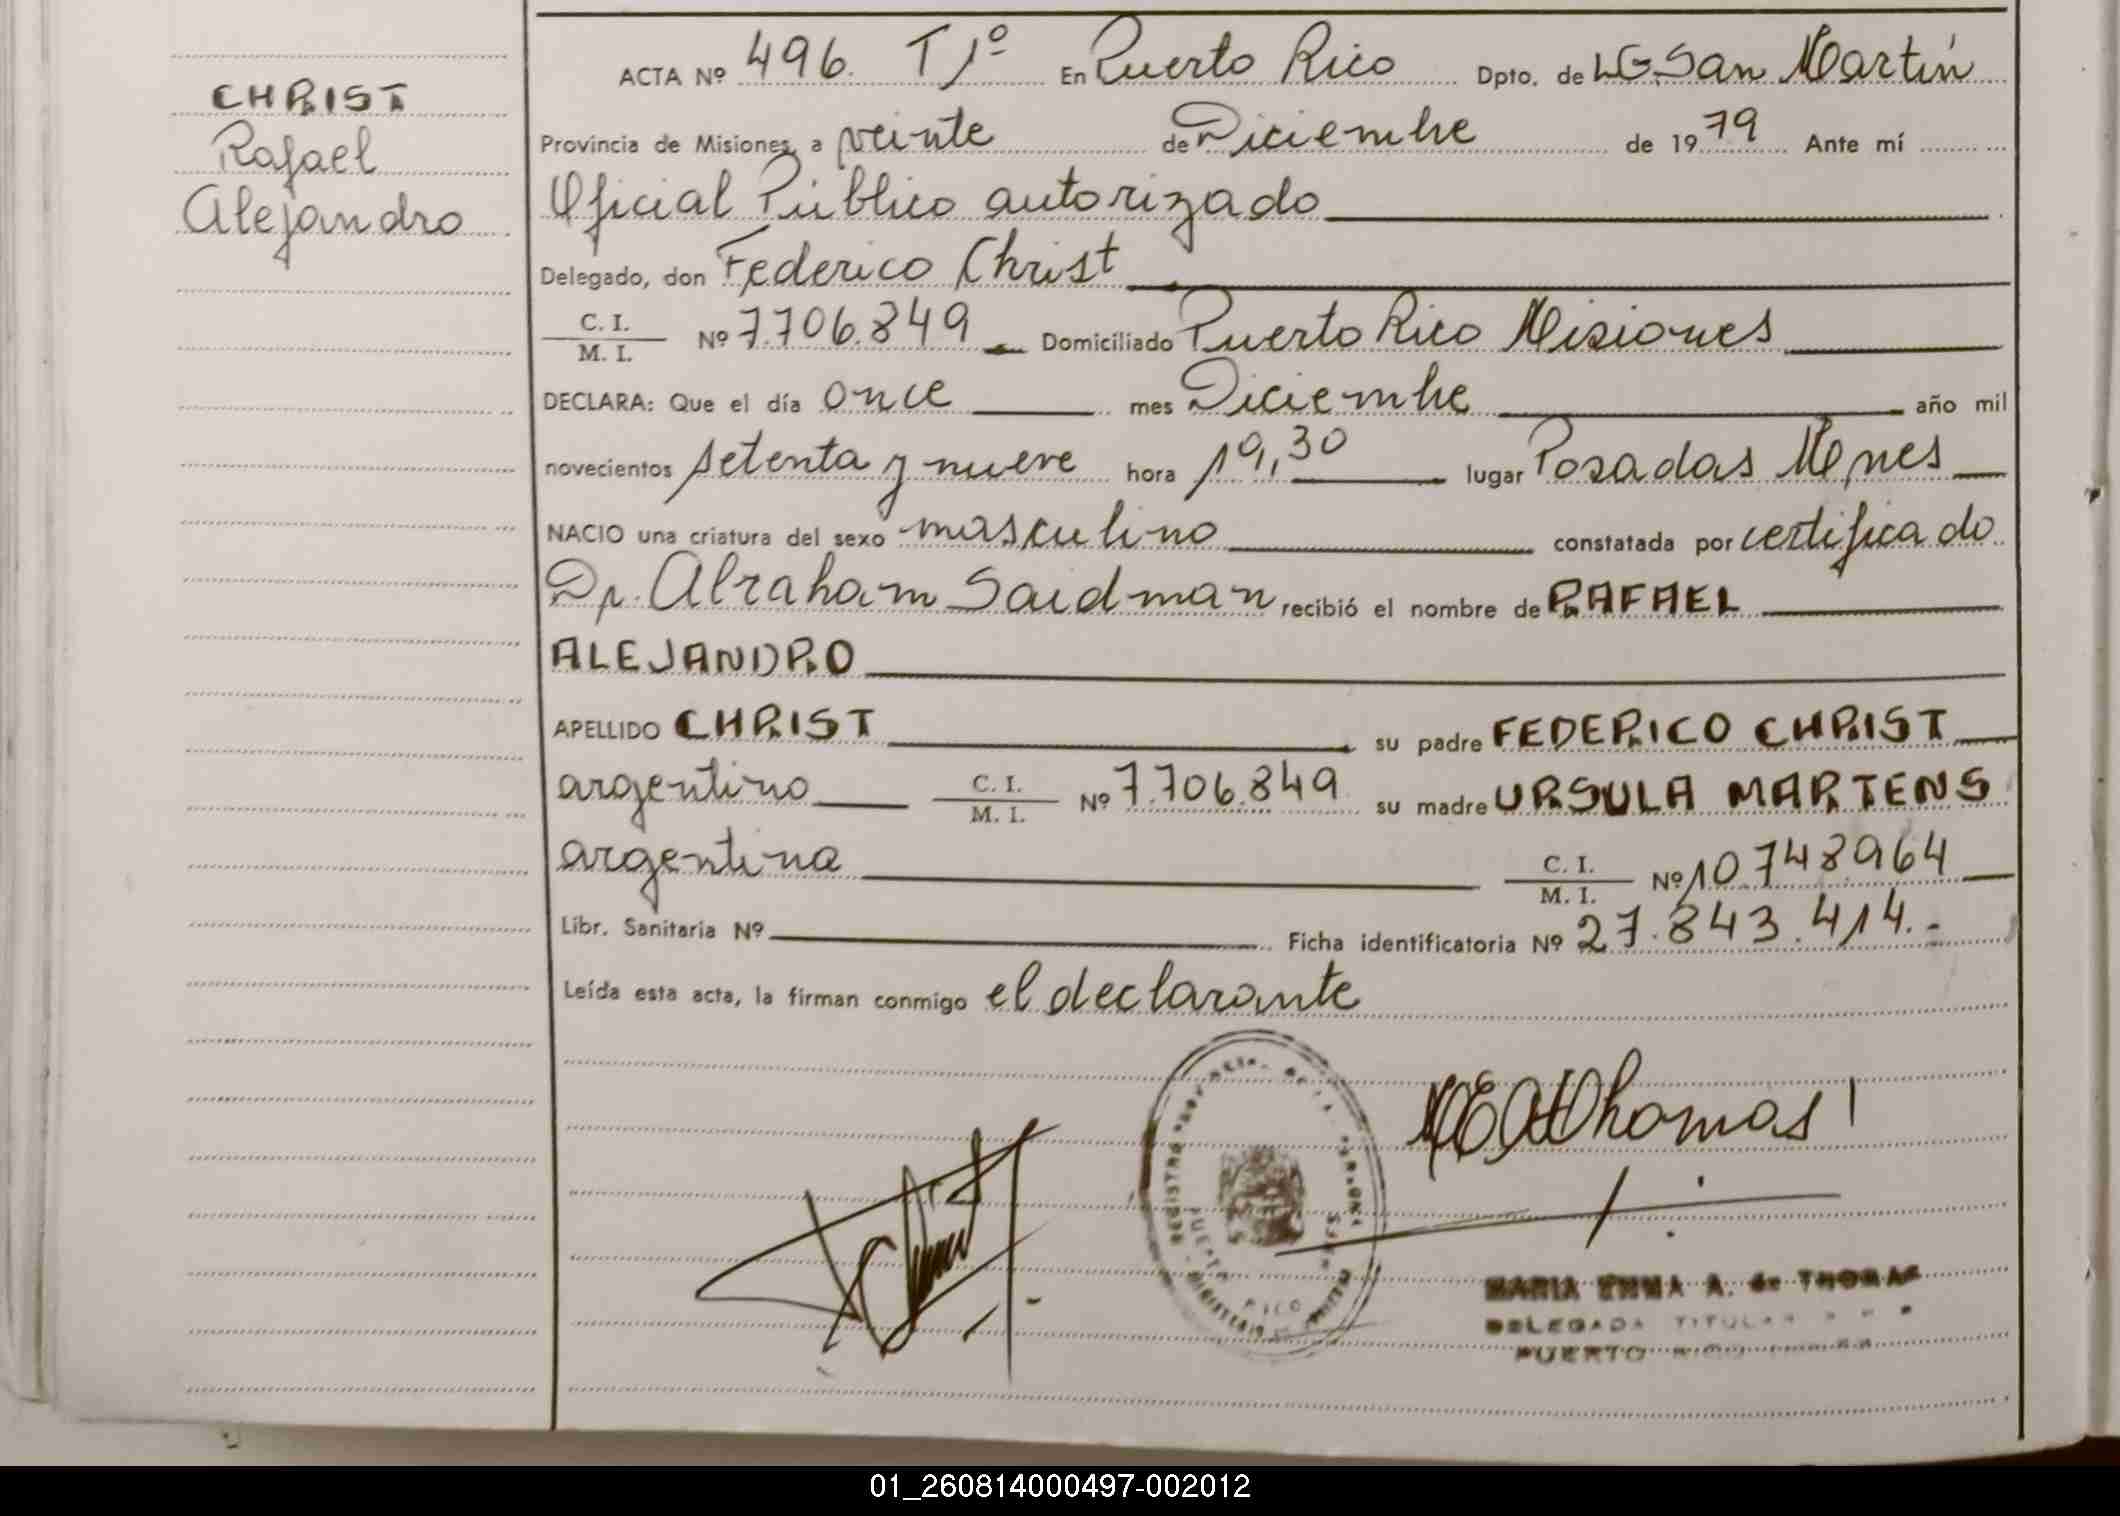 CHRIST
Rafael
Alejandro
ACTA Nº 496. T 1º En Puerto Rico Dpto. de LG San Martín
Provincia de Misiones, a veinte de Diciembre de 1979 Ante mí
Oficial Público autorizado
Delegado, don Federico Christ
C. I. / M. I. Nº 7.706.849 Domiciliado Puerto Rico Misiones
DECLARA: Que el día once mes Diciembre año mil
novecientos setenta y nueve hora 19,30 lugar Posadas Mnes
NACIO una criatura del sexo masculino constatada por certificado
Dr. Abraham Saidman recibió el nombre de RAFAEL
ALEJANDRO
APELLIDO CHRIST su padre FEDERICO CHRIST
argentino C. I. / M. I. Nº 7.706.849 su madre URSULA MARTENS
argentina C. I. / M. I. Nº 10748964
Libr. Sanitaria Nº Ficha identificatoria Nº 27.843.414.-
Leída esta acta, la firman conmigo el declarante
MARIA EMMA A. de THOMAS
DELEGADA TITULAR
PUERTO RICO
01_260814000497-002012